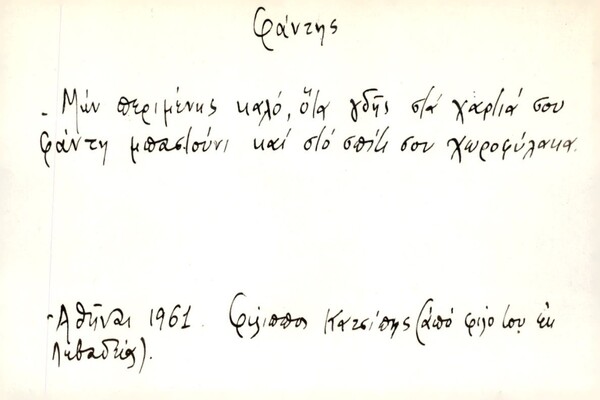 φάντης
- Μήν περιμένης καλό, ὅτα γδῆς στά χαρτιά σου
φάντη μπαστούνι καί στό σπίτι σου χωροφύλακα.
- Ἀθῆναι 1961. Φίλιππος Κατσίπης (ἀπό φίλο του ἐκ
Λεβαδείας).